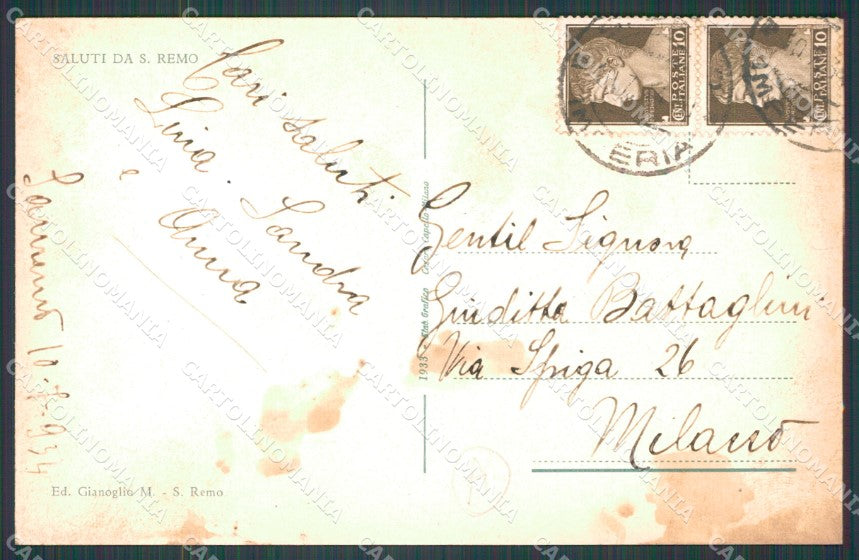 SALUTI DA S. REMO
Cari saluti
Livia. Sandra
e Anna
Sanremo
Ed. Gianoglio M. - S. Remo
1933
POSTE
ITALIANE
10
POSTE
ITALIANE
10
ERIA
Gentil Signora
Giuditta Battaglini
Via Spiga 26
Milano
CARTOLINOMANIA